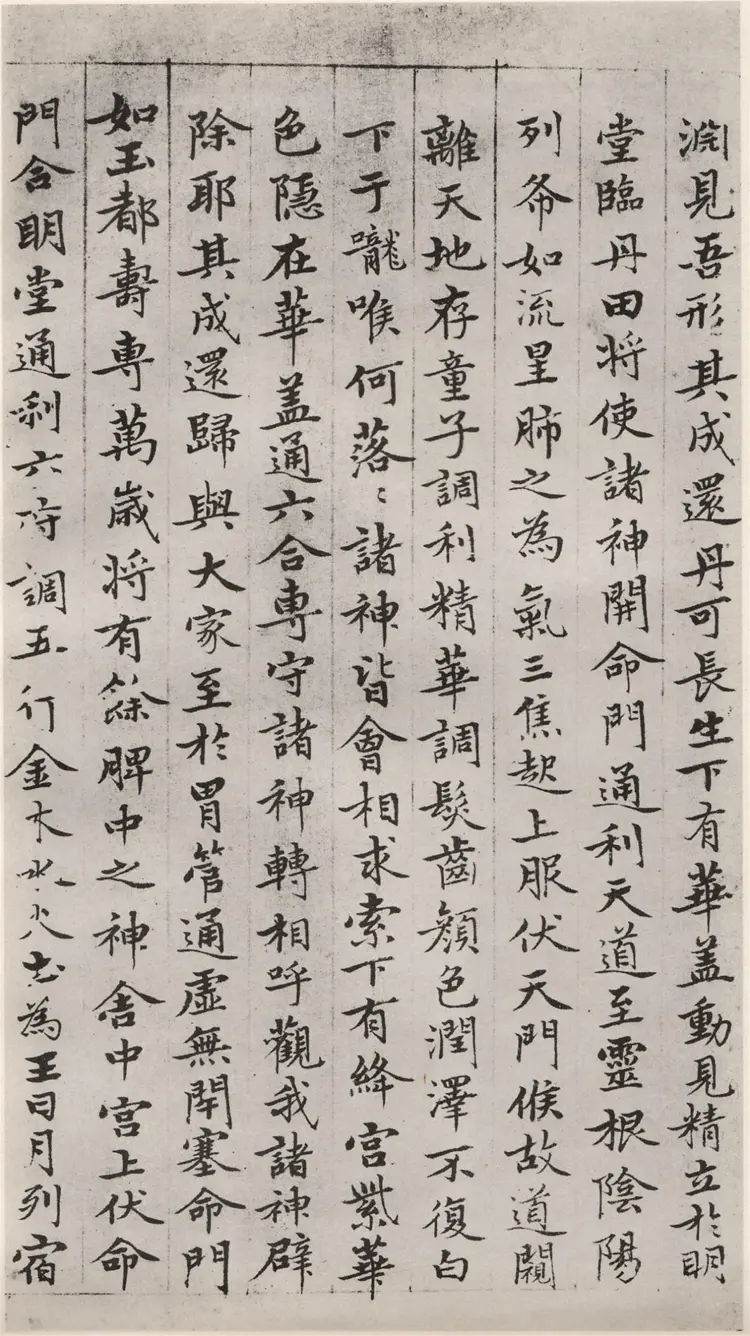 淵見吾形其成還丹可長生下有華盖動見精立於明
堂臨丹田将使諸神開命門通利天道至靈根陰陽
列布如流星肺之為氣三焦起上服伏天門候故道闚
離天地存童子調利精華調髮齒顔色潤澤不復白
下于嚨喉何落〻諸神皆會相求索下有絳宫紫華
色隱在華盖通六合専守諸神轉相呼觀我諸神辟
除耶其成還歸與大家至於胃管通虛無閇塞命門
如玉都壽専萬歳将有餘脾中之神舎中宫上伏命
門合明堂通利六府調五行金木水火土為王日月列宿